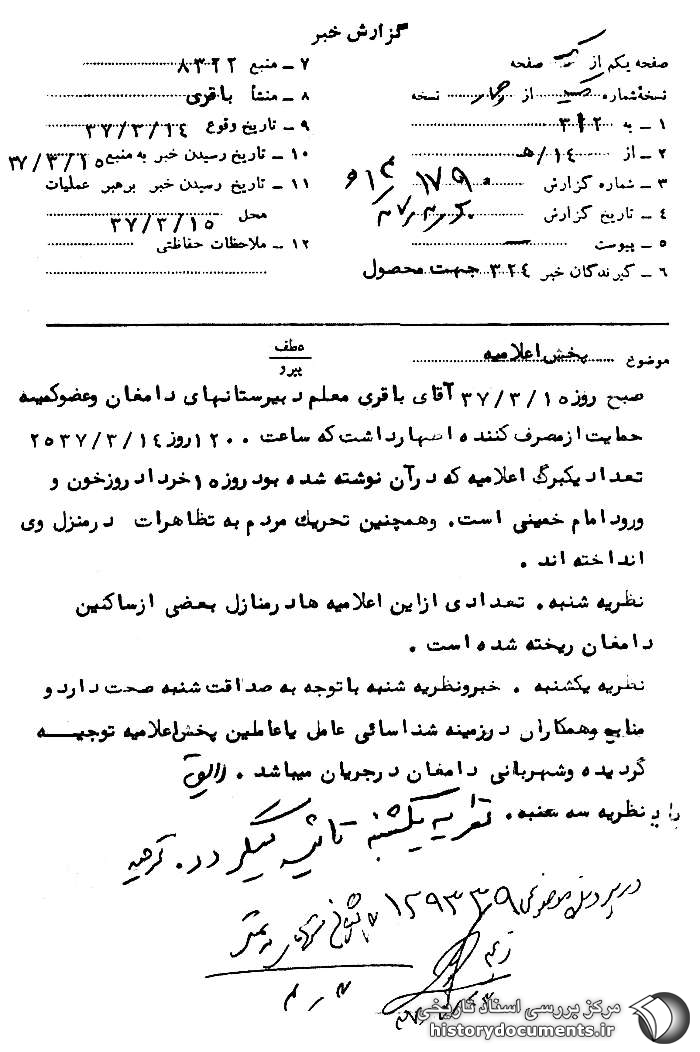 گزارش خبر
صفحه یکم از یک صفحه
نسخه شماره یک از چهار نسخه
۱ ـ به ۳۱۲
۲ ـ از ۱۴/هـ
۳ ـ شماره گزارش ۱۷۹۰
۴ ـ تاریخ گزارش
۵ ـ پیوست ــ
۶ ـ گیرندگان خبر ۳۲۴ جهت محصول
۷ ـ منبع ۸۳۲۲
۸ ـ منشأ باقری
۹ ـ تاریخ وقوع ۳۷/۳/۱۴
۱۰ ـ تاریخ رسیدن خبر به منبع ۳۷/۳/۱۵
۱۱ ـ تاریخ رسیدن خبر برهبر عملیات
محل ۳۷/۳/۱۵
۱۲ ـ ملاحظات حفاظتی
موضوع پخش اعلامیه
عطف
پیرو
صبح روز ۳۷/۳/۱۵ آقای باقری معلم دبیرستانهای دامغان وعضوکمیته
حمایت ازمصرف کننده اظهارداشت که ساعت ۱۲۰۰ روز ۲۵۳۷/۳/۱۴
تعداد یکبرگ اعلامیه که درآن نوشته شده بود روز ۱۵خرداد روزخون و
ورود امام خمینی است. وهمچنین تحریک مردم به تظاهرات درمنزل وی
انداخته اند .
نظریه شنبه. تعدادی ازاین اعلامیه ها درمنازل بعضی ازساکنین
دامغان ریخته شده است .
نظریه یکشنبه . خبرونظریه شنبه باتوجه به صداقت شنبه صحت دارد و
منابع وهمکاران درزمینه شناسائی عامل یاعاملین پخش اعلامیه توجیـه
گردیده وشهربانی دامغان درجریان میباشد .
نظریه سه شنبه. نظریه یکشنبه تائید میگردد.
۱۲۹۳۳۹
مرکز بررسی اسناد تاریخی
historydocuments.ir